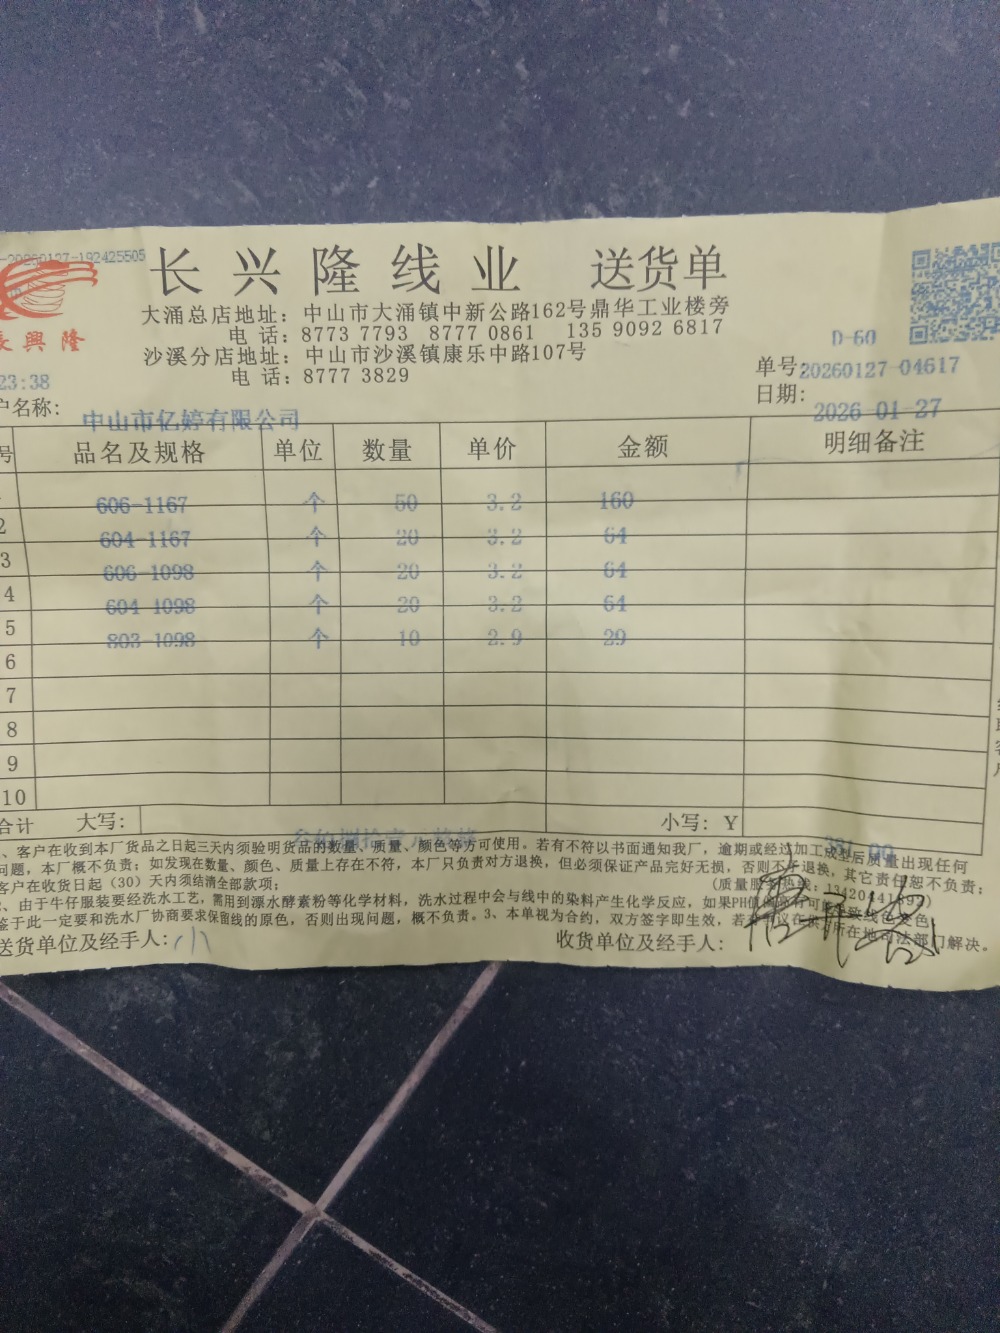 -20260127-192425505
长兴隆线业 送货单
長興隆
大涌总店地址：中山市大涌镇中新公路162号鼎华工业楼旁
电话：8773 7793 8777 0861 135 9092 6817
沙溪分店地址：中山市沙溪镇康乐中路107号
电话：8777 3829
D-60
23:38
单号：20260127-04617
户名称：中山市亿婷有限公司
日期：2026-01-27
号 品名及规格 单位 数量 单价 金额 明细备注
606-1167 个 50 3.2 160
2 604-1167 个 20 3.2 64
3 606-1098 个 20 3.2 64
4 604-1098 个 20 3.2 64
5 803-1098 个 10 2.9 29
6
7
8
9
10
合计 大写： 小写：Y 381.00
、客户在收到本厂货品之日起三天内须验明货品的数量、质量、颜色等方可使用。若有不符以书面通知我厂，逾期或经过加工成型后质量出现任何
问题，本厂概不负责；如发现在数量、颜色、质量上存在不符，本厂只负责对方退换，但必须保证产品完好无损，否则不予退换，其它责任恕不负责；
客户在收货日起（30）天内须结清全部款项； （质量服务热线：13420441892）
、由于牛仔服装要经洗水工艺，需用到漂水酵素粉等化学材料，洗水过程中会与线中的染料产生化学反应，如果PH值 有可能 致线色变色
鉴于此一定要和洗水厂协商要求保留线的原色，否则出现问题，概不负责。3、本单视为合约，双方签字即生效，若有 议在供方所在地司法部门解决。
送货单位及经手人：小
收货单位及经手人：